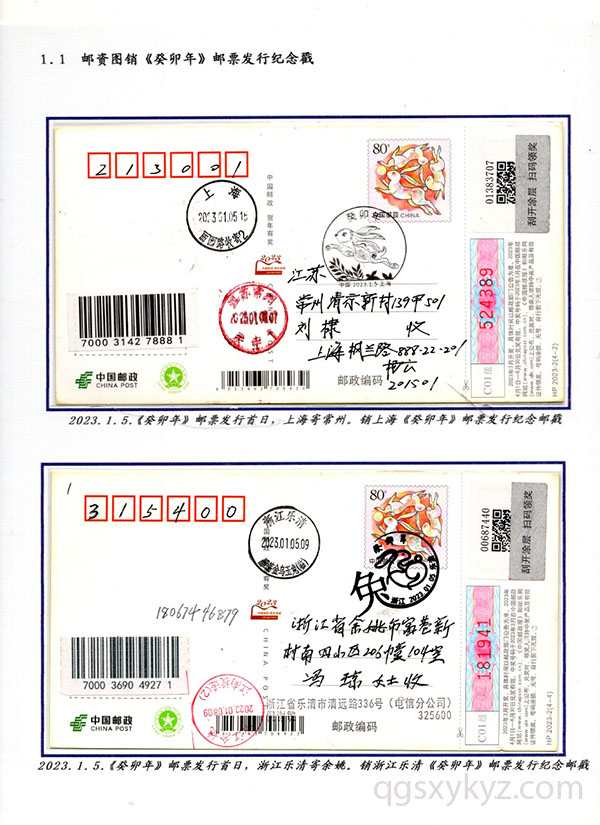 1.1 邮资图销《癸卯年》邮票发行纪念戳
213001
80分
中国邮政 CHINA
01383707
刮开涂层 扫码领奖
上海
2023.01.05.15
中国邮政 贺年有奖
癸卯年
中国·2023.1.5·上海
江苏
常州清凉新村139甲501
刘 棣 收
上海枫兰路888-22-201
201501
7000 3142 7888 1
中国邮政
CHINA POST
邮政编码
524389
C01组
HP 2023-2(4-2)
2023.1.5.《癸卯年》邮票发行首日，上海寄常州。销上海《癸卯年》邮票发行纪念邮戳
1
315400
80分
00687440
刮开涂层 扫码领奖
浙江乐清
2023.01.05.09
兔
浙江 2023.01.05 乐清
18067446879
浙江省余姚市富巷新
村南四小区206幢104室
冯 琼 女士 收
7000 3690 4927 1
CHINA PO
浙江省乐清市清远路336号（电信分公司）
325600
中国邮政
CHINA POST
邮政编码
181941
C01组
HP 2023-2(4-1)
2023.1.5.《癸卯年》邮票发行首日，浙江乐清寄余姚。销浙江乐清《癸卯年》邮票发行纪念邮戳
qgsxykyz.com